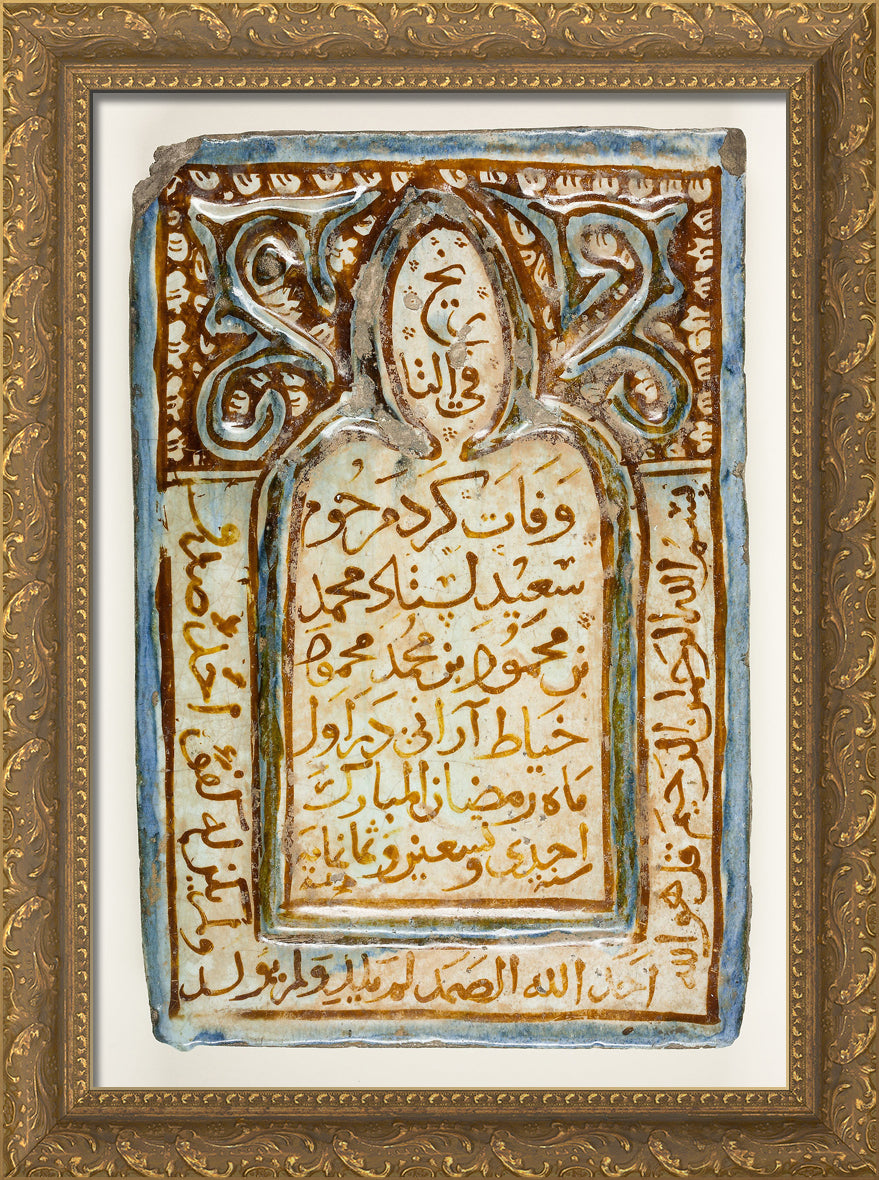 في التا
ريخ
وفات كرد مرحوم
سعيد استاد محمد
بن محمود بن محمد محمود
خياط آراني در اول
ماه رمضان المبارك
سنة احدى وتسعين وثمانماية
بسم الله الرحمن الرحيم قل هو الله
احد الله الصمد لم يلد ولم يولد
ولم يكن له كفوا احد صدق